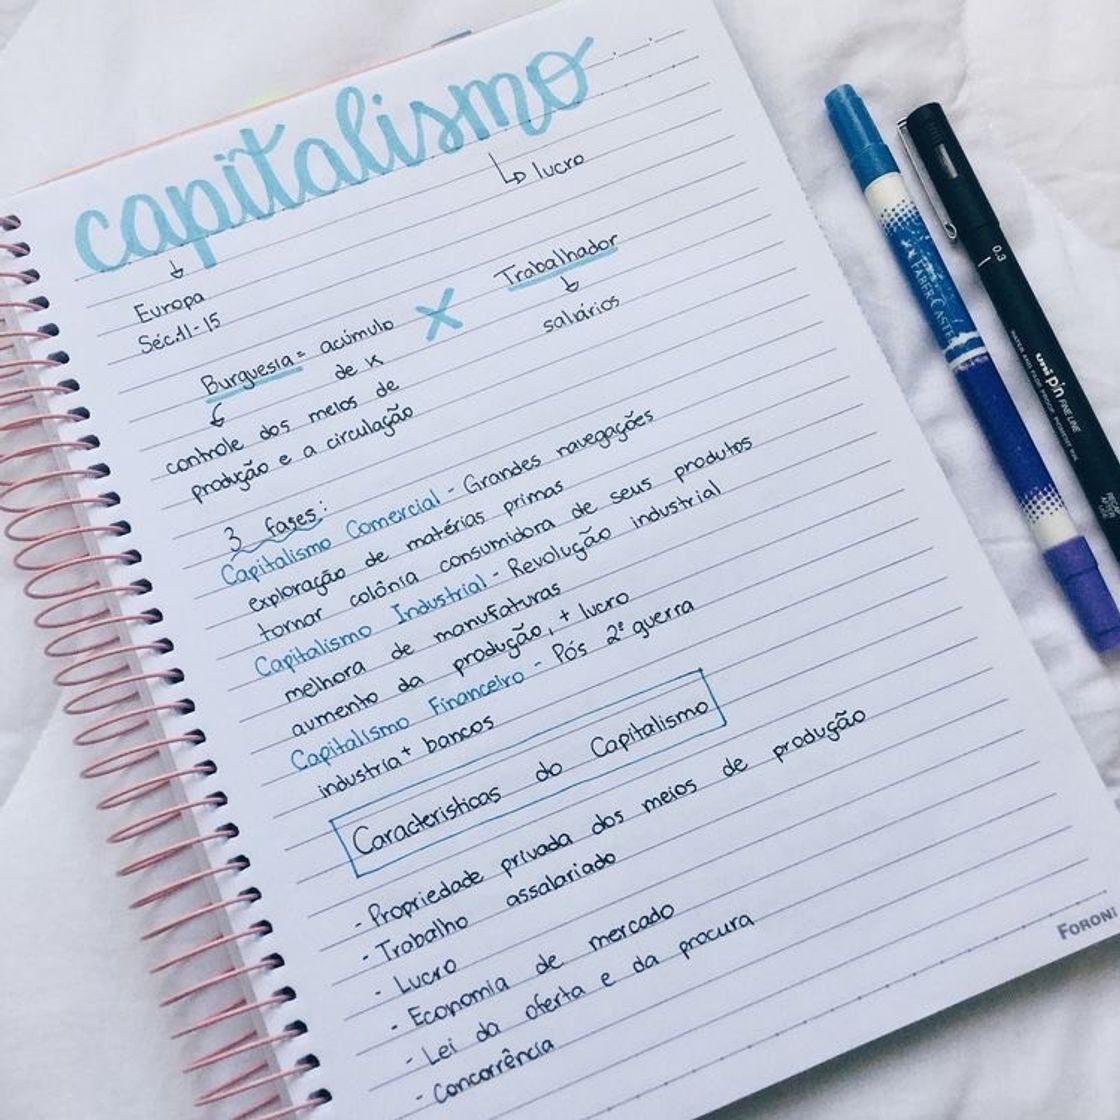 capitalismo
↳ lucro
↓
Europa
Séc.11-15
Burguesia = acúmulo
de K
X
Trabalhador
↓
salários
controle dos meios de
produção e a circulação
3 fases:
Capitalismo Comercial - Grandes navegações
exploração de matérias primas
tornar colônia consumidora de seus produtos
Capitalismo Industrial - Revolução industrial
melhora de manufaturas
aumento da produção, + lucro
Capitalismo Financeiro - Pós 2ª guerra
industria + bancos
Caracteristicas do Capitalismo
- Propriedade privada dos meios de produção
- Trabalho assalariado
- Lucro
- Economia de mercado
- Lei da oferta e da procura
- Concorrência
FORONI
FABER-CASTELL
0.3
uni pin FINE LINE
WATER AND FADE PROOF, PIGMENT INK